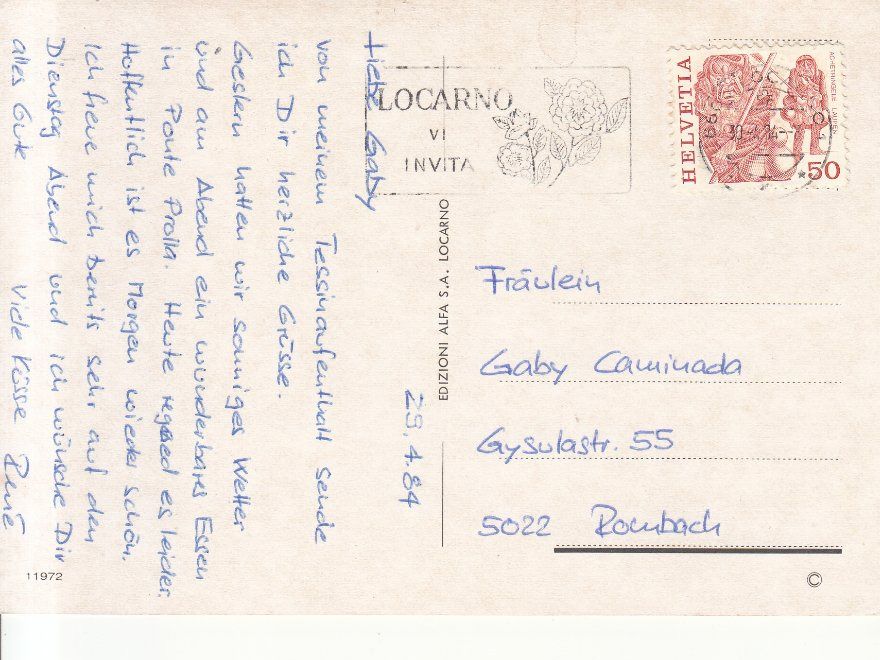 29.4.84
Liebe Gaby
von meinem Tessinaufenthalt sende
ich Dir herzliche Grüsse.
Gestern hatten wir sonniges Wetter
und am Abend ein wunderbares Essen
in Ponte Prolla. Heute regned es leider.
Hoffentlich ist es Morgen wieder schön.
Ich freue mich bereits sehr auf den
Dienstag Abend und ich wünsche Dir
alles Gute Viele Küsse René
11972
EDIZIONI ALFA S.A. LOCARNO
LOCARNO
VI
INVITA
HELVETIA
ACHETRINGELER LAUPEN
50
Fräulein
Gaby Caminada
Gysulastr. 55
5022 Rombach
©